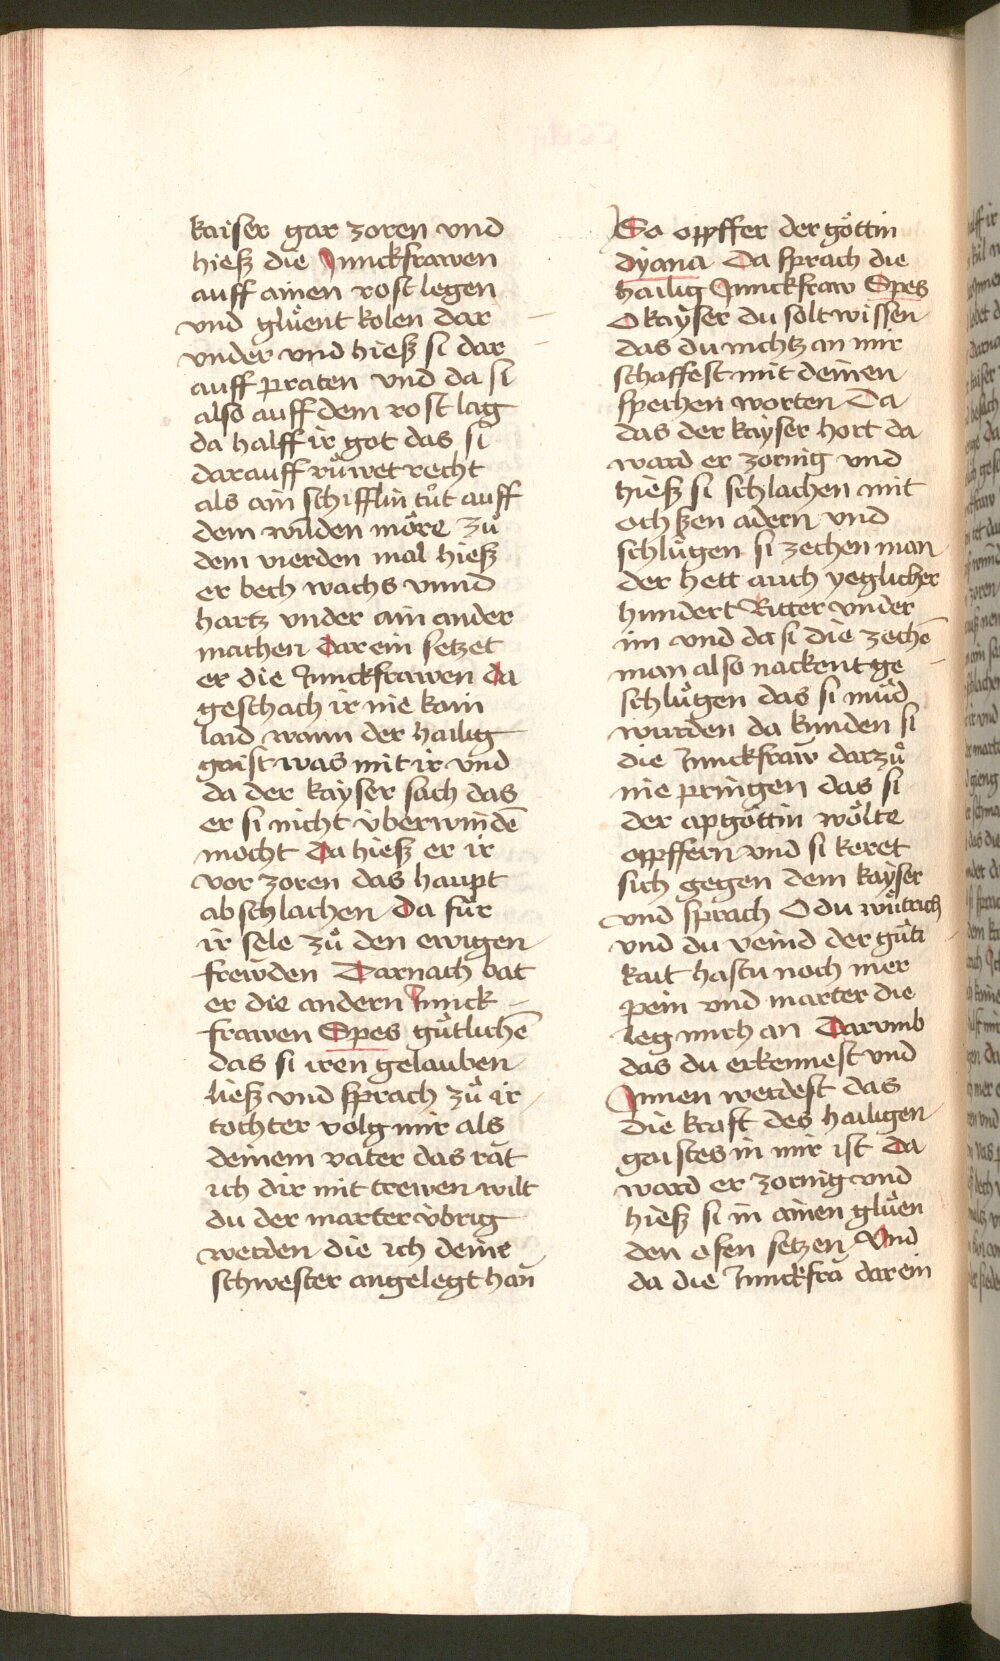 kaiser gar zoren vnd
hiesz die Junckfrawen
auff ainen rost legen
vnd glu̎ent kolen dar
vnder vnd hiesz si dar
auff praten vnd da si
also auff dem rost lag
da halff ir got das si
darauff růwet recht
als ain schifflin tůt auff
dem wilden möre zů
dem vierden mal hiesz
er bech wachs vnnd
hartz vnder ain ander
machen darein setzet
er die Junckfrawen da
geschach ir nie kain
laid wann der hailig
gaist was mit ir vnd
da der kayser sach das
er si nicht v̈berwindē
mocht da hiesz er ir
vor zoren das haupt
abschlachen da fu̎r
ir sele zů den ewigen
frewden Darnach bat
er die andern Junck
frawen Spes gu̎tlichē
das si iren gelauben
liesz vnd sprach zů ir
tochter volg mir als
deinem vater das rät
ich dir mit trewen wilt
du der marter v̈brig
werden die ich deine
schwester angelegt han
So opffer der göttin
dyana Da sprach die
hailig Junckfraw Spes
O kayser du solt wissen
das du nichtz an mir
schaffest mit deinen
spechen worten Da
das der kayser hort da
ward er zornig vnd
hiesz si schlachen mit
ochszen adern vnd
schlůgen si zechen man
der hett auch yeglicher
hundert Ritter vnder
im vnd da si die zechē
man also nackent ge
schlůgen das si mu̎d
wurden da kunden si
die Junckfraw darzů
nie pringen das si
der apgöttin wölte
opffern vnd si keret
sich gegen dem kayser
vnd sprach O du wu̎trich
vnd du veind der gu̎ti
kait hastu noch mer
pein vnd marter die
leg mich an Darvmb
das du erkennest vnd
Jnnen werdest das
die kraft des hailigen
gaistes in mir ist Da
ward er zornig vnd
hiesz si in ainen glu̎en
den ofen setzen Vnd
da die Junckfra darein